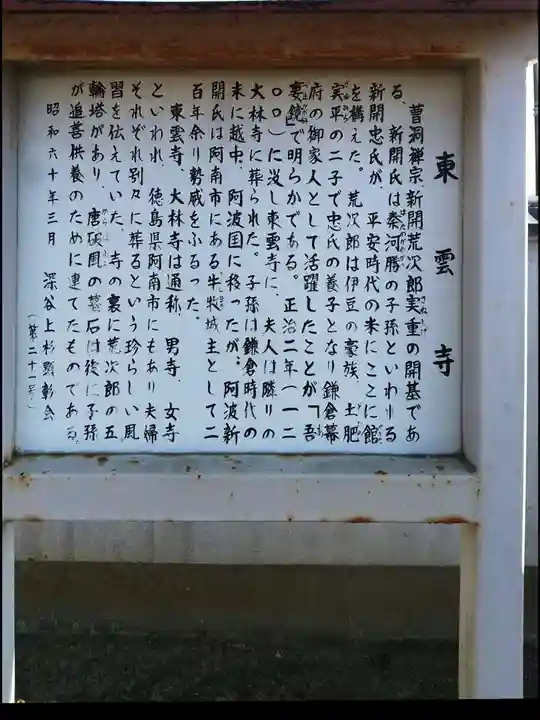 東雲寺
曹洞禅宗、新開荒次郎実重の開基であ
る。
新開氏は秦河勝の子孫といわれる
新開忠氏が、平安時代の末にここに館
を構えた。荒次郎は伊豆の豪族、土肥
実平の二子で忠氏の養子となり鎌倉幕
府の御家人として活躍したことが「吾
妻鏡」で明らかである。正治二年(一二
〇〇)に没し東雲寺に、夫人は隣りの
大林寺に葬られた。子孫は鎌倉時代の
末に越中、阿波国に移ったが、阿波新
開氏は阿南市にある牛牧城主として二
百年余り勢威をふるった。
東雲寺、大林寺は通称、男寺、女寺
といわれ、徳島県阿南市にもあり夫婦
それぞれ別々に葬るという珍らしい風
習を伝えていた。寺の裏に荒次郎の五
輪塔があり、唐破風の墓石は後に子孫
が追善供養のために建てたものである。
昭和六十年三月 深谷上杉顕彰会
(第二十一号)